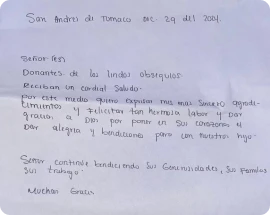 San Andres de Tumaco Dic. 29 del 2004.
Señor (es)
Donantes de los lindos obsequios
Reciban un cordial Saludo.
por este medio quiero expresar mis mas Sinceros agrade-
cimientos y Felicitar tan hermosa labor y Dar
gracias a Dios por poner en Sus corazones el
Dar alegria y bendiciones para con nuestros hijos.
Señor continúe bendiciendo Sus Generosidades, Sus familias
Sus trabajos.
Muchas Gracias